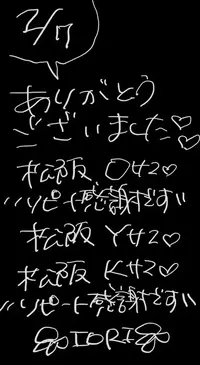 2/7
ありがとう
ございました♡♡
松阪 O42♡
リピート感謝です
松阪 Y42♡
松阪 K42♡
リピート感謝です
IORI